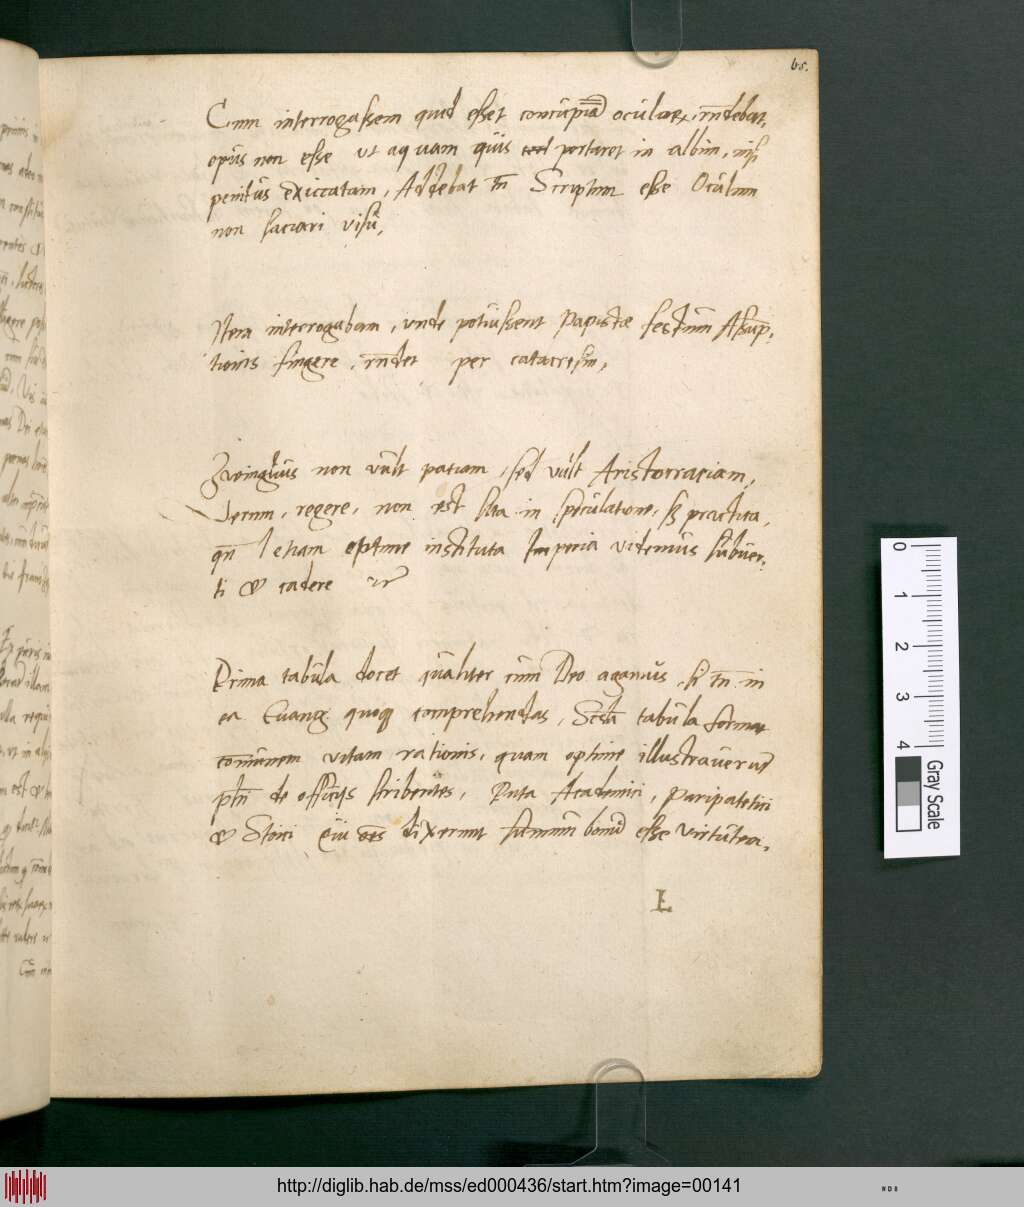 65.
Cum interrogassem quid esset concupia oculorx, rñdebat,
opus non esse ut aquam quis portaret in albim, nisi
penitus exiccatam, Addebat tn̄ Scriptum esse Oculum
non saciari visu,
Item interrogabam, unde potiussent Papistæ festum Assup:
tionis fingere, rñdet per catacresim,
Zvinglius non vult patiam, sed vult Aristocratiam,
Verum, regere, non est sita in speculatione, sz practica,
qn̄ etiam optime instituta Imperia videmus subuer:
ti & cadere
Prima tabula docet qualiter cum Deo agamus, tn̄ in
ea Euang quoqz comprehendas, Scd̄a tabula format
com̄unem vitam rationis, quam optime illustraverūt
phi de officijs scribentes, Puta Academici, Paripatetici
& Stoici dixerunt summum bonū esse virtutem,
L
0
1
2
3
4
Gray Scale
http://diglib.hab.de/mss/ed000436/start.htm?image=00141